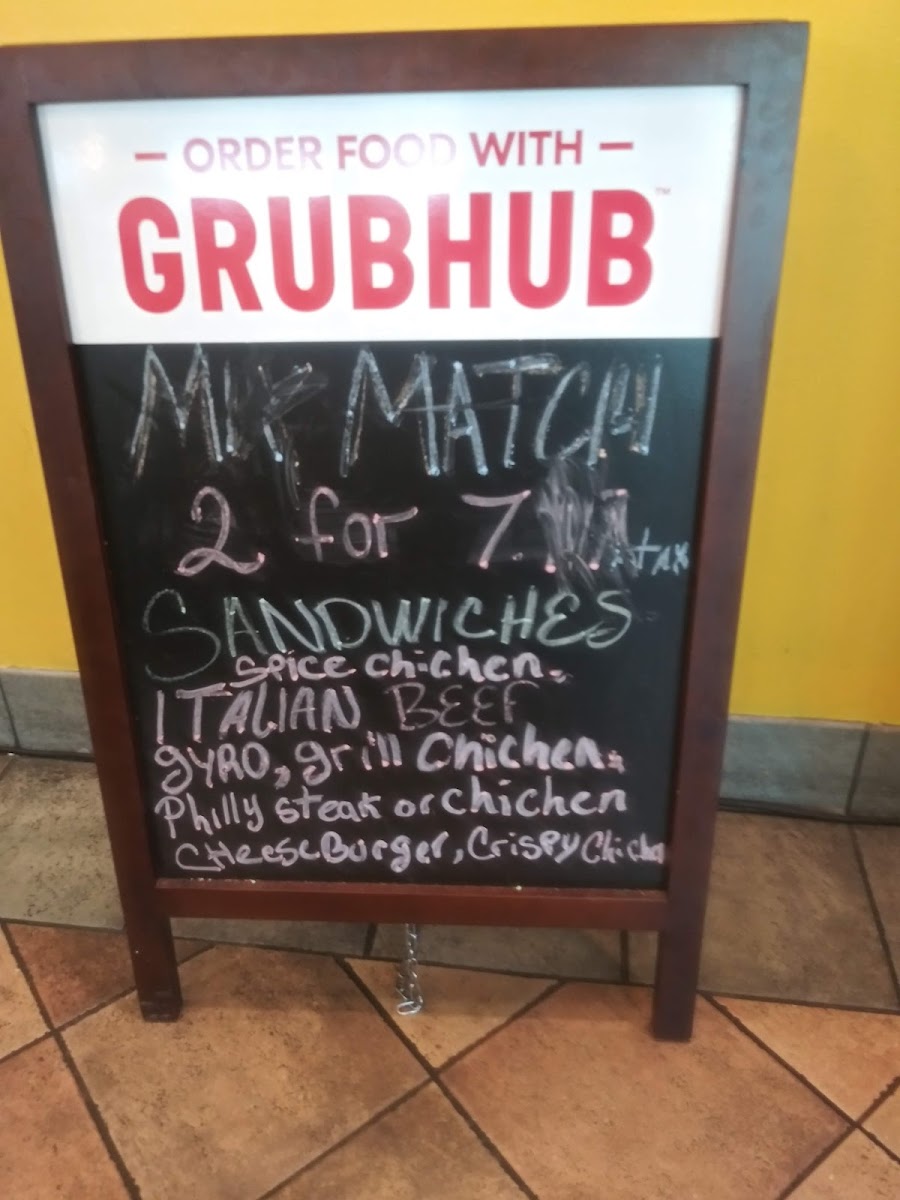 — ORDER FOOD WITH —
GRUBHUB™
MIX MATCH
2 for 7. + tax
SANDWICHES
Spice chichen.
ITALIAN BEEF
gyRO, grill Chichen.
Philly steak or chichen
CHeese Burger, Crispy Chichen